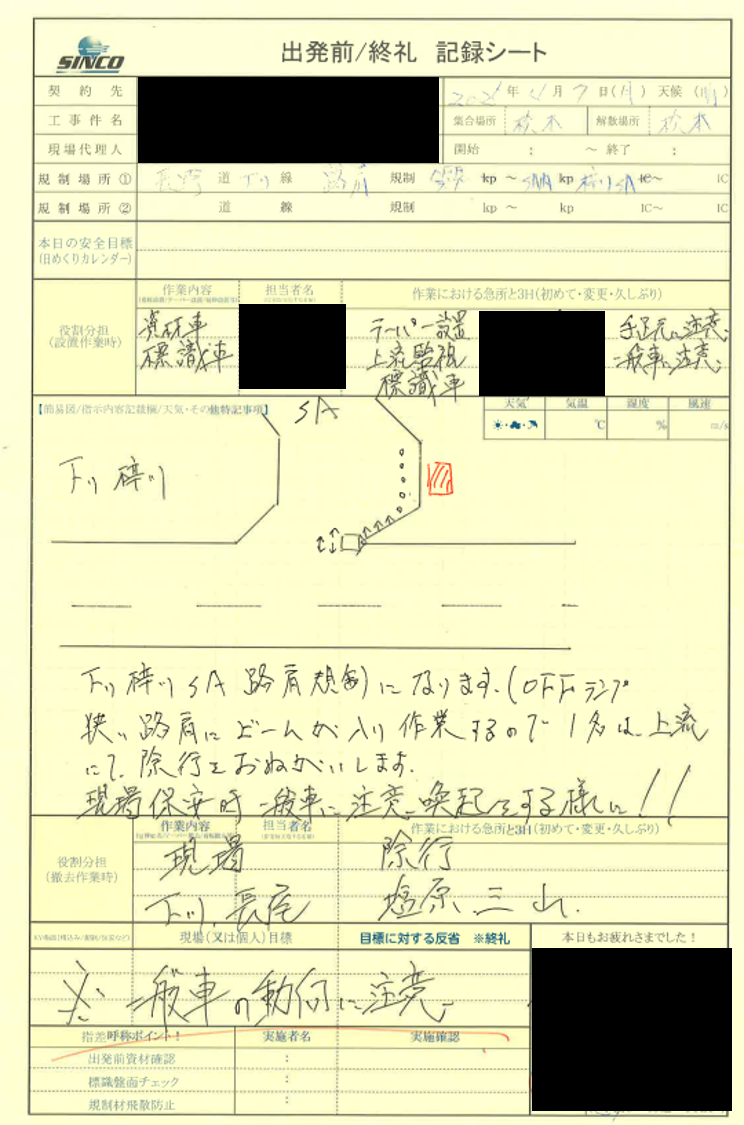 SINCO
出発前/終礼 記録シート
契約先
年 月 7日(月) 天候(晴)
工事件名
集合場所 松本 解散場所 松本
現場代理人
開始 : ～ 終了 :
規制場所① 長野 道 下り 線 路肩 規制 kp ～ kp 梓川SA IC～ IC
規制場所② 道 線 規制 kp ～ kp IC～ IC
本日の安全目標
(日めくりカレンダー)
作業内容 担当者名 作業における急所と3H(初めて・変更・久しぶり)
役割分担
(設置作業時)
資材車 テーパー設置 手足元に注意
標識車 上流監視 一般車に注意
標識車
【簡易図/指示内容記載欄/天気・その他特記事項】
SA
天気 気温 湿度 風速
℃ % m/s
下り 梓川
下り 梓川SA 路肩規制になります。(OFFランプ
狭い路肩にどーんが入り作業するので1名は、上流
にて、除行をおねがいします。
現場保安時一般車に注意喚起をする様に!!
作業内容 担当者名 作業における急所と3H(初めて・変更・久しぶり)
役割分担
(撤去作業時)
現場 除行
下り、長尾 塩原 三山.
現場(又は個人)目標 目標に対する反省 ※終礼 本日もお疲れさまでした!
※ 一般車の動向に注意
指差呼称ポイント! 実施者名 実施確認
出発前資材確認 :
標識盤面チェック :
規制材飛散防止 :